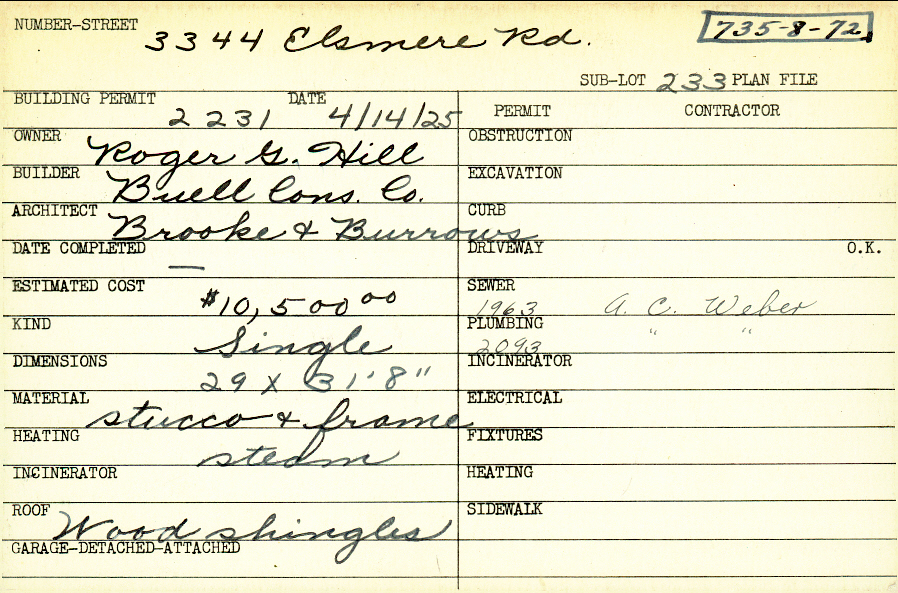 NUMBER-STREET 3344 Elsmere Rd. 735-8-72
SUB-LOT 233 PLAN FILE
BUILDING PERMIT 2231 DATE 4/14/25
PERMIT CONTRACTOR
OWNER Roger G. Hill
OBSTRUCTION
BUILDER Buell Cons. Co.
EXCAVATION
ARCHITECT Brooke & Burrows
CURB
DATE COMPLETED —
DRIVEWAY O.K.
ESTIMATED COST $10,500 00
SEWER 1963 A. C. Weber
KIND Single
PLUMBING 2093 " "
DIMENSIONS 29 X 31'8"
INCINERATOR
MATERIAL stucco & frame
ELECTRICAL
HEATING steam
FIXTURES
INCINERATOR
HEATING
ROOF Wood shingles
SIDEWALK
GARAGE-DETACHED-ATTACHED